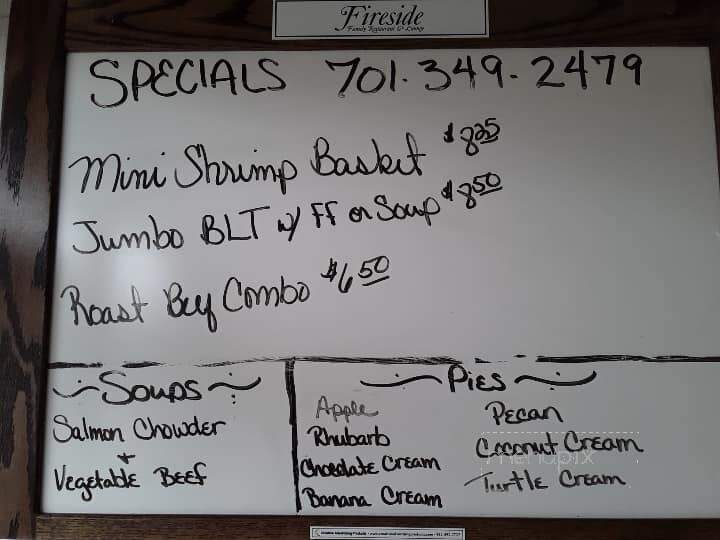 Fireside
Family Restaurant & Lounge
SPECIALS 701-349-2479
Mini Shrimp Basket $8.25
Jumbo BLT w/ FF or Soup $8.50
Roast Beef Combo $6.50
Soups
Salmon Chowder
+
Vegetable Beef
Pies
Apple
Rhubarb
Chocolate Cream
Banana Cream
Pecan
Coconut Cream
Turtle Cream
menupix